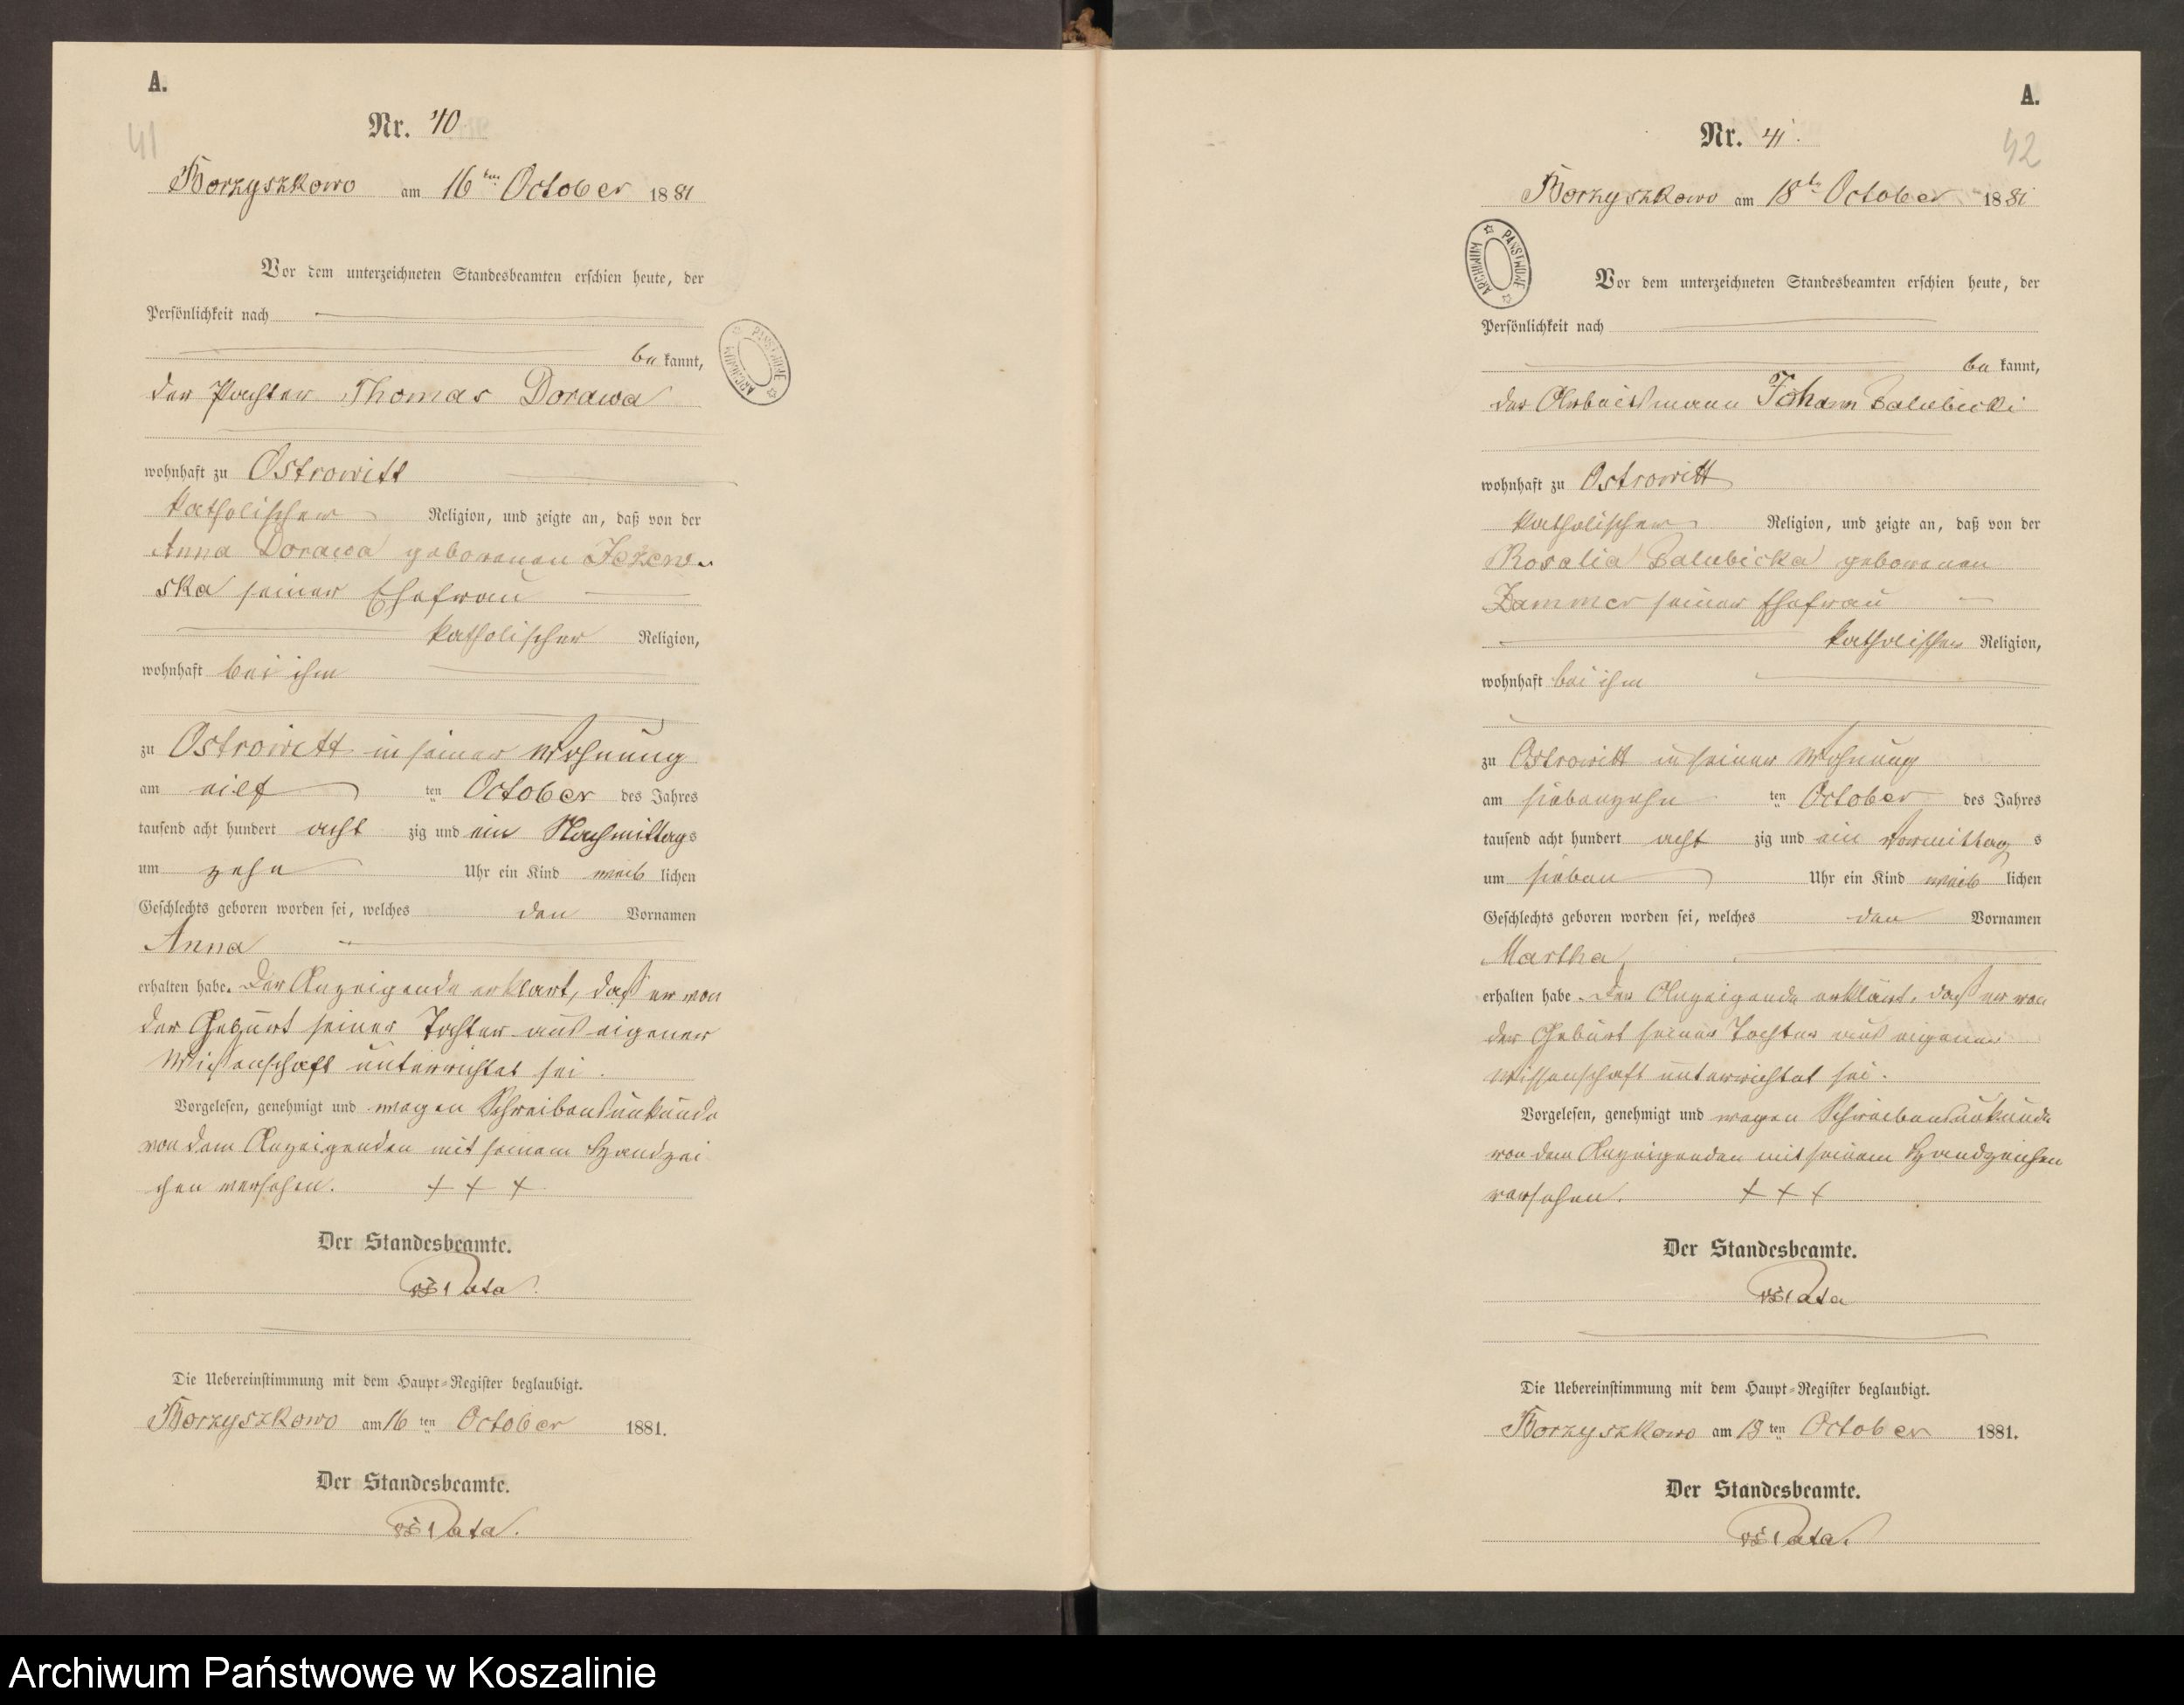 A.
41
Nr. 40
Borzyszkowo am 16ten October 1881
Vor dem unterzeichneten Standesbeamten erschien heute, der
Persönlichkeit nach
be kannt,
der Pachter Thomas Dorawa
wohnhaft zu Ostrowitt
katholischer Religion, und zeigte an, daß von der
Anna Dorawa geborenen Jezew-
ska seiner Ehefrau
katholischer Religion,
wohnhaft bei ihm
zu Ostrowitt in seiner Wohnung
am eilf ten October des Jahres
tausend acht hundert acht zig und ein Nachmittags
um zehn Uhr ein Kind weib lichen
Geschlechts geboren worden sei, welches den Vornamen
Anna
erhalten habe. Der Anzeigende erklärt, daß er von
der Geburt seiner Tochter aus eigener
Wißenschaft unterrichtet sei.
Vorgelesen, genehmigt und wegen Schreibensunkunde
von dem Anzeigenden mit seinem Handzei
chen versehen. + + +
Der Standesbeamte.
Pata.
Die Uebereinstimmung mit dem Haupt-Register beglaubigt.
Borzyszkowo am 16 ten October 1881.
Der Standesbeamte.
Pata.
A.
42
Nr. 41.
Borzyszkowo am 18t October 1881
ARCHIWUM PAŃSTWOWE
Vor dem unterzeichneten Standesbeamten erschien heute, der
Persönlichkeit nach
be kannt,
der Arbeitsmann Johann Balubicki
wohnhaft zu Ostrowitt
katholischer Religion, und zeigte an, daß von der
Rosalia Balubicka geborenen
seiner Ehefrau
katholischer Religion,
wohnhaft bei ihm
zu Ostrowitt in seiner Wohnung
am siebenzehn ten October des Jahres
tausend acht hundert acht zig und ein Vormittag s
um sieben Uhr ein Kind weib lichen
Geschlechts geboren worden sei, welches den Vornamen
Martha
erhalten habe. Der Anzeigende erklärt, daß er von
der Geburt seiner Tochter aus eigener
Wissenschaft unterrichtet sei.
Vorgelesen, genehmigt und wegen Schreibensunkunde
von dem Anzeigenden mit seinem Handzeichen
versehen. + + +
Der Standesbeamte.
Pata
Die Uebereinstimmung mit dem Haupt-Register beglaubigt.
Borzyszkowo am 18 ten October 1881.
Der Standesbeamte.
Pata.
Archiwum Państwowe w Koszalinie